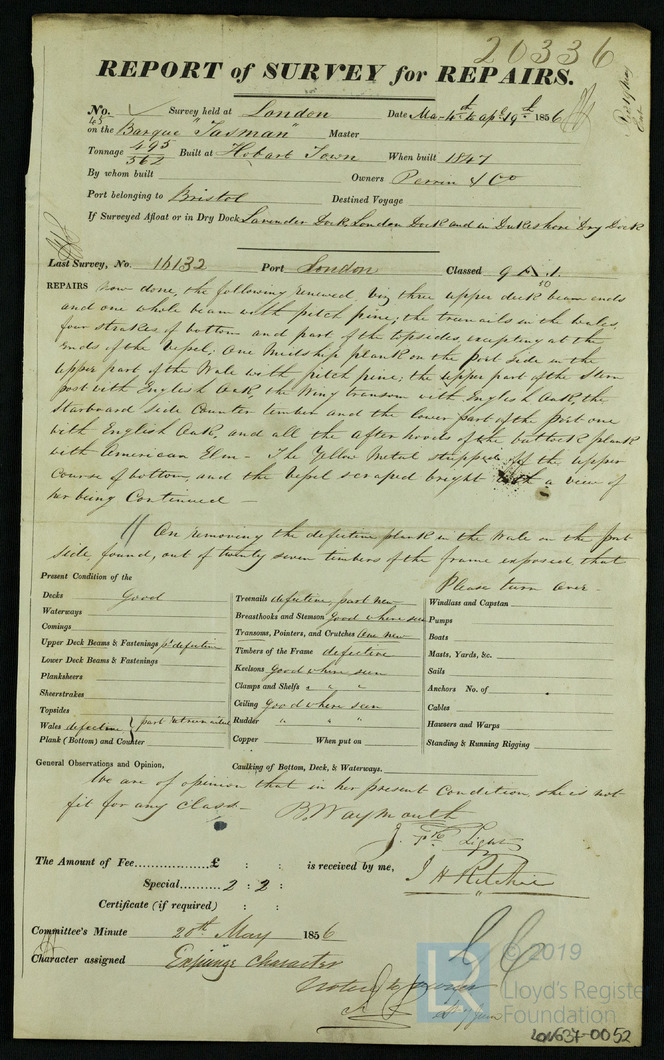 20336
REPORT of SURVEY for REPAIRS.
No. Survey held at London Date Mar 4th to apl 19th 1856
on the Barque "Tasman" Master
Tonnage 495 / 562 Built at Hobart Town When built 1847
By whom built Owners Perrin & Co
Port belonging to Bristol Destined Voyage
If Surveyed Afloat or in Dry Dock Lavender Dock, London Dock and in Dukeshore Dry Dock
Last Survey, No. 16132 Port London Classed 9 A 1.
REPAIRS now done, the following renewed, viz three upper deck beam ends
and one whole beam with pitch pine; the treenails in the wales,
four strakes of bottom and part of the topsides, excepting at the
Ends of the Vessel; One Midship plank on the Port side in the
upper part of the Wale with pitch pine; the upper part of the Stern
post with English Oak, the Wing transom with English Oak, the
Starboard Side Counter timber and the lower part of the port one
with English Oak, and all the after hoods of the buttock plank
with American Elm - The Yellow Metal stripped off the upper
Course of bottom, and the Vessel scraped bright with a view of
her being Continued
On removing the defective plank in the Wale on the port
side, found, out of twenty seven timbers of the frame exposed, that
Please turn over -
Present Condition of the
Decks Good
Waterways
Comings
Upper Deck Beams & Fastenings pt defective
Lower Deck Beams & Fastenings
Planksheers
Sheerstrakes
Topsides
Wales defective } part retreenailed
Plank (Bottom) and Counter
Treenails defective, part new
Breasthooks and Stemson Good where seen
Transoms, Pointers, and Crutches One New
Timbers of the Frame defective
Keelsons Good where seen
Clamps and Shelfs " " "
Ceiling Good where seen
Rudder " " "
Copper When put on
Caulking of Bottom, Deck, & Waterways.
Windlass and Capstan
Pumps
Boats
Masts, Yards, &c.
Sails
Anchors No. of
Cables
Hawsers and Warps
Standing & Running Rigging
General Observations and Opinion,
We are of opinion that in her present Condition, she is not
fit for any Class -
B. Waymouth
J. Light
The Amount of Fee £ : : is received by me,
J H Ritchie
Special 2 : 2 :
Certificate (if required) : :
Committee's Minute 20th May 1856
Character assigned Expunge Character
© 2019
LR
Lloyd's Register
Foundation
LON637-0052